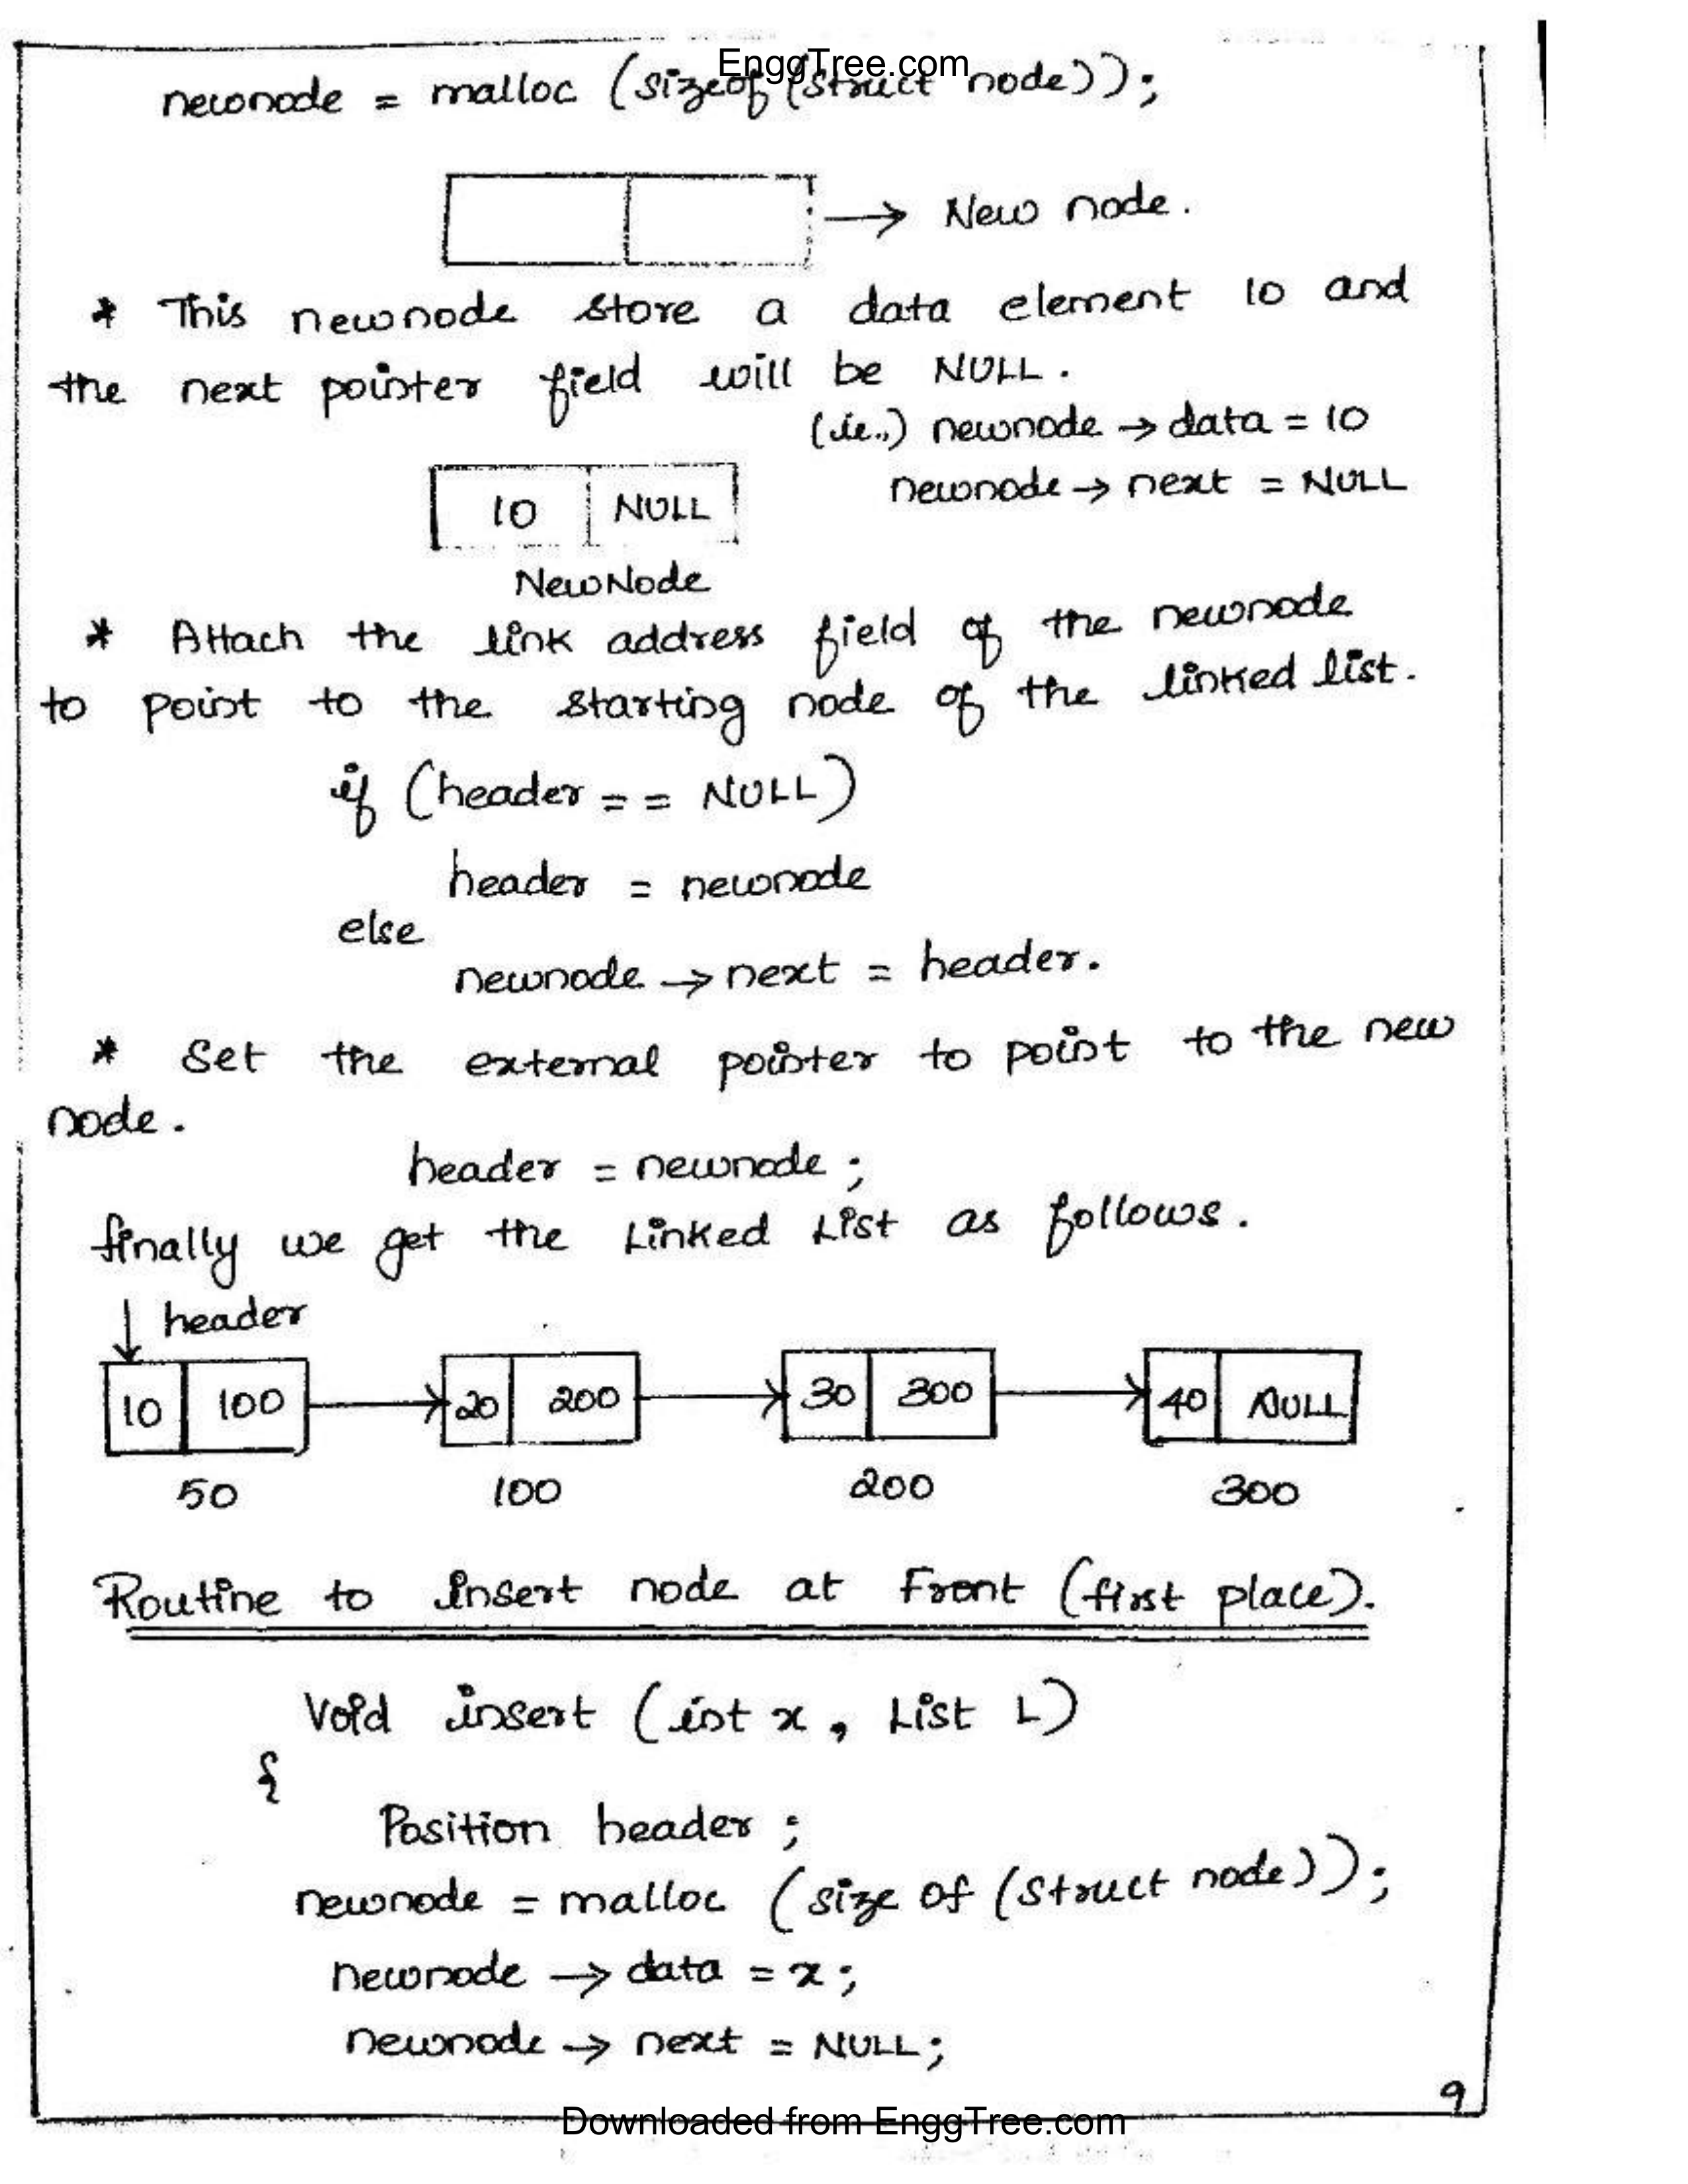 EnggTree.com
newnode = malloc (sizeof (struct node));
→ New node.
* This newnode store a data element 10 and
the next pointer field will be NULL.
(ie.,) newnode → data = 10
newnode → next = NULL
10 NULL
NewNode
* Attach the link address field of the newnode
to point to the starting node of the linked list.
if (header == NULL)
header = newnode
else
newnode → next = header.
* Set the external pointer to point to the new
node.
header = newnode;
finally we get the Linked List as follows.
↓ header
10 100 → 20 200 → 30 300 → 40 NULL
50 100 200 300
Routine to insert node at Front (first place).
Void insert (int x, List L)
{
Position header;
newnode = malloc (size of (struct node));
newnode → data = x;
newnode → next = NULL;
9
Downloaded from EnggTree.com